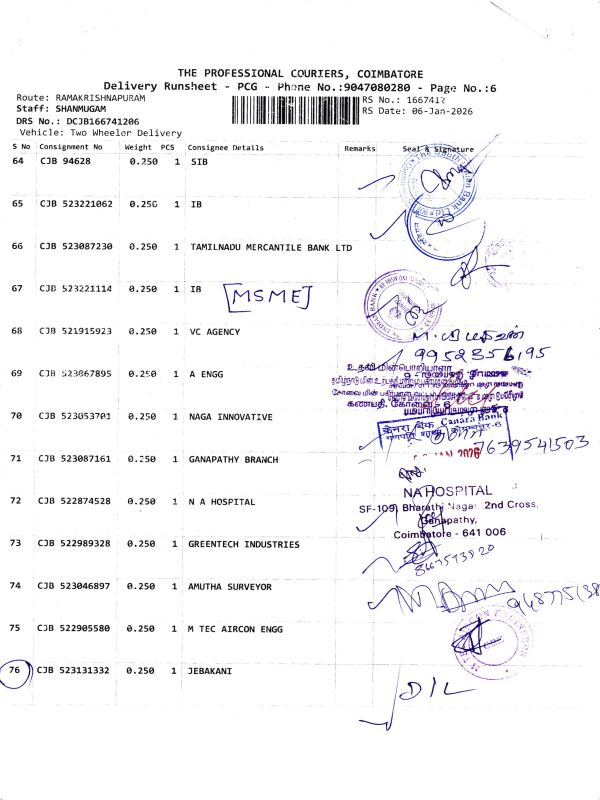 THE PROFESSIONAL COURIERS, COIMBATORE
Delivery Runsheet - PCG - Phone No.:9047080280 - Page No.:6
Route: RAMAKRISHNAPURAM
RS No.: 1667412
Staff: SHANMUGAM
RS Date: 06-Jan-2026
DRS No.: DCJB166741206
Vehicle: Two Wheeler Delivery
S No Consignment No Weight PCS Consignee Details Remarks Seal & Signature
64 CJB 94628 0.250 1 SIB
65 CJB 523221062 0.250 1 IB
66 CJB 523087230 0.250 1 TAMILNADU MERCANTILE BANK LTD
67 CJB 523221114 0.250 1 IB [MSME]
68 CJB 521915923 0.250 1 VC AGENCY
9952356195
உதவி மின்பொறியாளர்
69 CJB 523067895 0.250 1 A ENGG
கணபதி, கோவை - 6
70 CJB 523053701 0.250 1 NAGA INNOVATIVE
केनरा बैंक Canara Bank
7639541503
71 CJB 523087161 0.250 1 GANAPATHY BRANCH
NA HOSPITAL
72 CJB 522874528 0.250 1 N A HOSPITAL
SF-109, Bharathi Nagar 2nd Cross,
Ganapathy,
Coimbatore - 641 006
73 CJB 522989328 0.250 1 GREENTECH INDUSTRIES
74 CJB 523046897 0.250 1 AMUTHA SURVEYOR
75 CJB 522905580 0.250 1 M TEC AIRCON ENGG
76 CJB 523131332 0.250 1 JEBAKANI
DIL